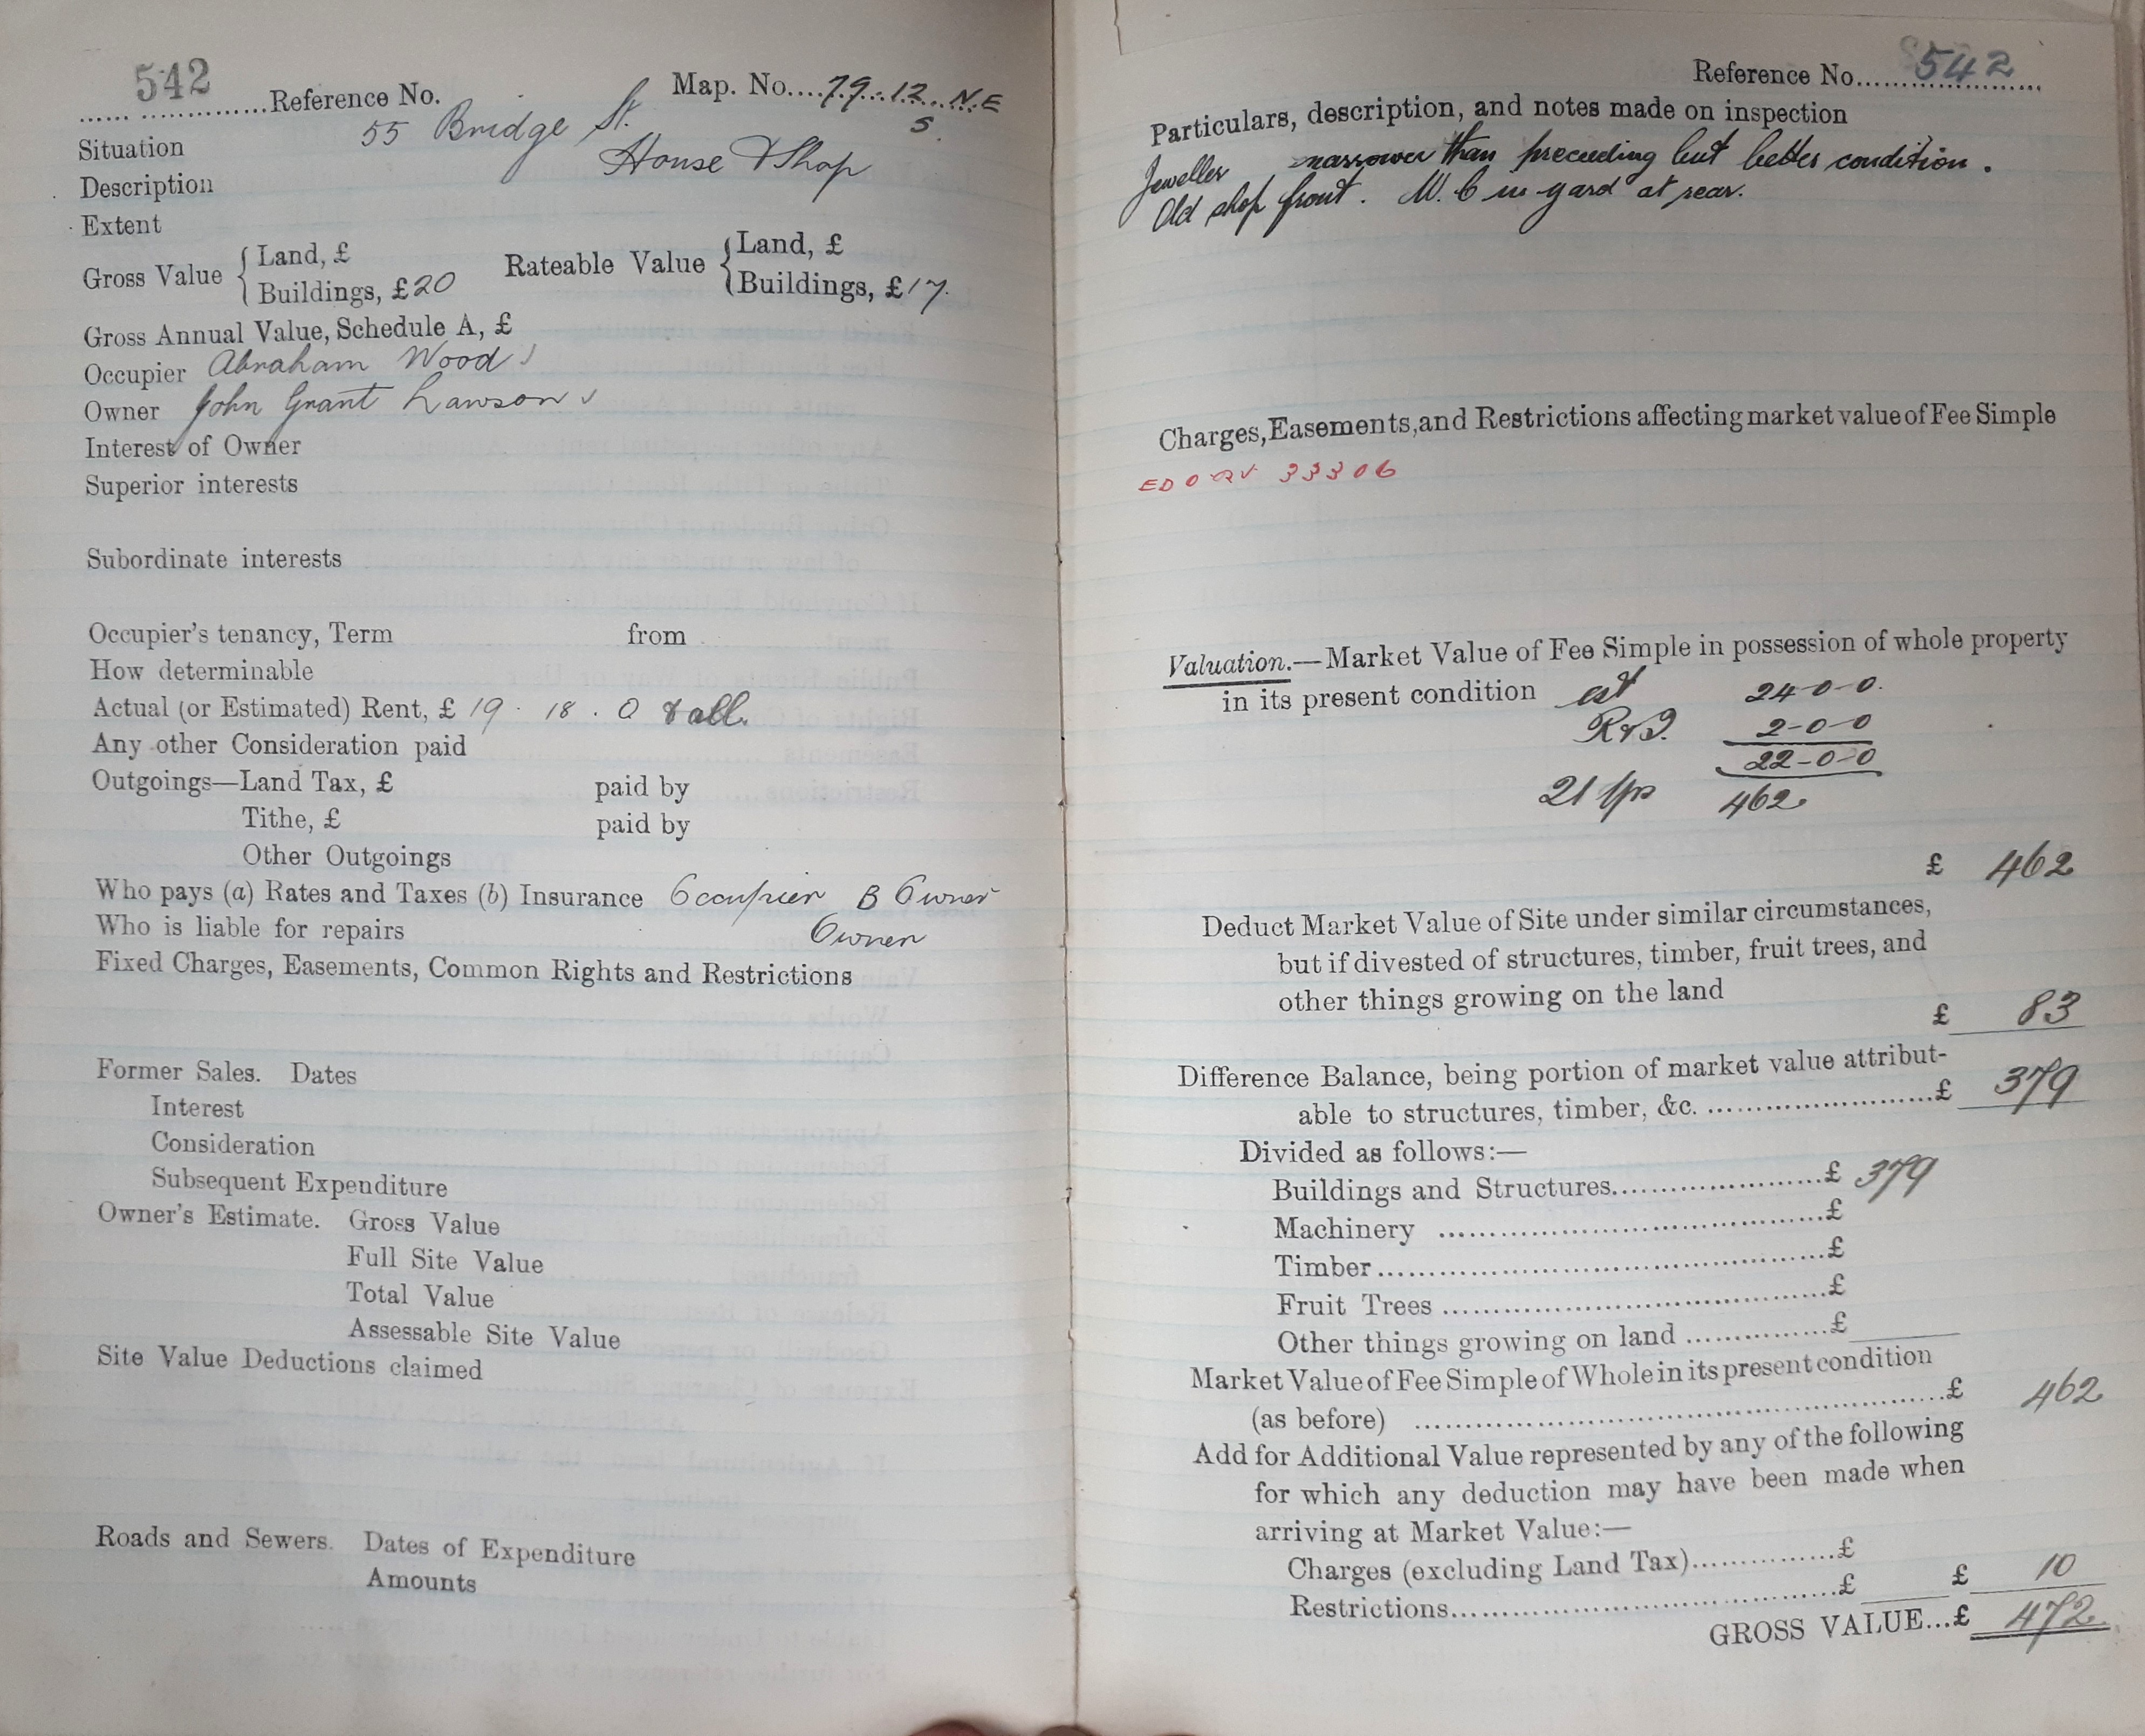 542
Reference No. Map. No....79.12. N.E
5
Situation 55 Bridge St.
Description House & Shop
Extent
Gross Value { Land, £ Rateable Value { Land, £
Buildings, £20 Buildings, £17.
Gross Annual Value, Schedule A, £
Occupier Abraham Wood
Owner John Grant Lawson
Interest of Owner
Superior interests
Subordinate interests
Occupier's tenancy, Term from
How determinable
Actual (or Estimated) Rent, £ 19 . 18 . 0 & all.
Any other Consideration paid
Outgoings—Land Tax, £ paid by
Tithe, £ paid by
Other Outgoings
Who pays (a) Rates and Taxes (b) Insurance Occupier B Owner
Who is liable for repairs Owner
Fixed Charges, Easements, Common Rights and Restrictions
Former Sales. Dates
Interest
Consideration
Subsequent Expenditure
Owner's Estimate. Gross Value
Full Site Value
Total Value
Assessable Site Value
Site Value Deductions claimed
Roads and Sewers. Dates of Expenditure
Amounts
Reference No. 542
Particulars, description, and notes made on inspection
Jeweller narrower than preceeding but better condition.
Old shop front. W.C in yard at rear.
Charges, Easements, and Restrictions affecting market value of Fee Simple
33306
Valuation.—Market Value of Fee Simple in possession of whole property
in its present condition est 24-0-0.
2-0-0
22-0-0
21 yps 462
£ 462
Deduct Market Value of Site under similar circumstances,
but if divested of structures, timber, fruit trees, and
other things growing on the land
£ 83
Difference Balance, being portion of market value attribut-
able to structures, timber, &c. ........................£ 379
Divided as follows:—
Buildings and Structures........................£ 379
Machinery ........................£
Timber........................£
Fruit Trees ........................£
Other things growing on land ...............£
Market Value of Fee Simple of Whole in its present condition
(as before) ........................£ 462
Add for Additional Value represented by any of the following
for which any deduction may have been made when
arriving at Market Value:—
Charges (excluding Land Tax)...............£
Restrictions........................£ £ 10
GROSS VALUE...£ 472